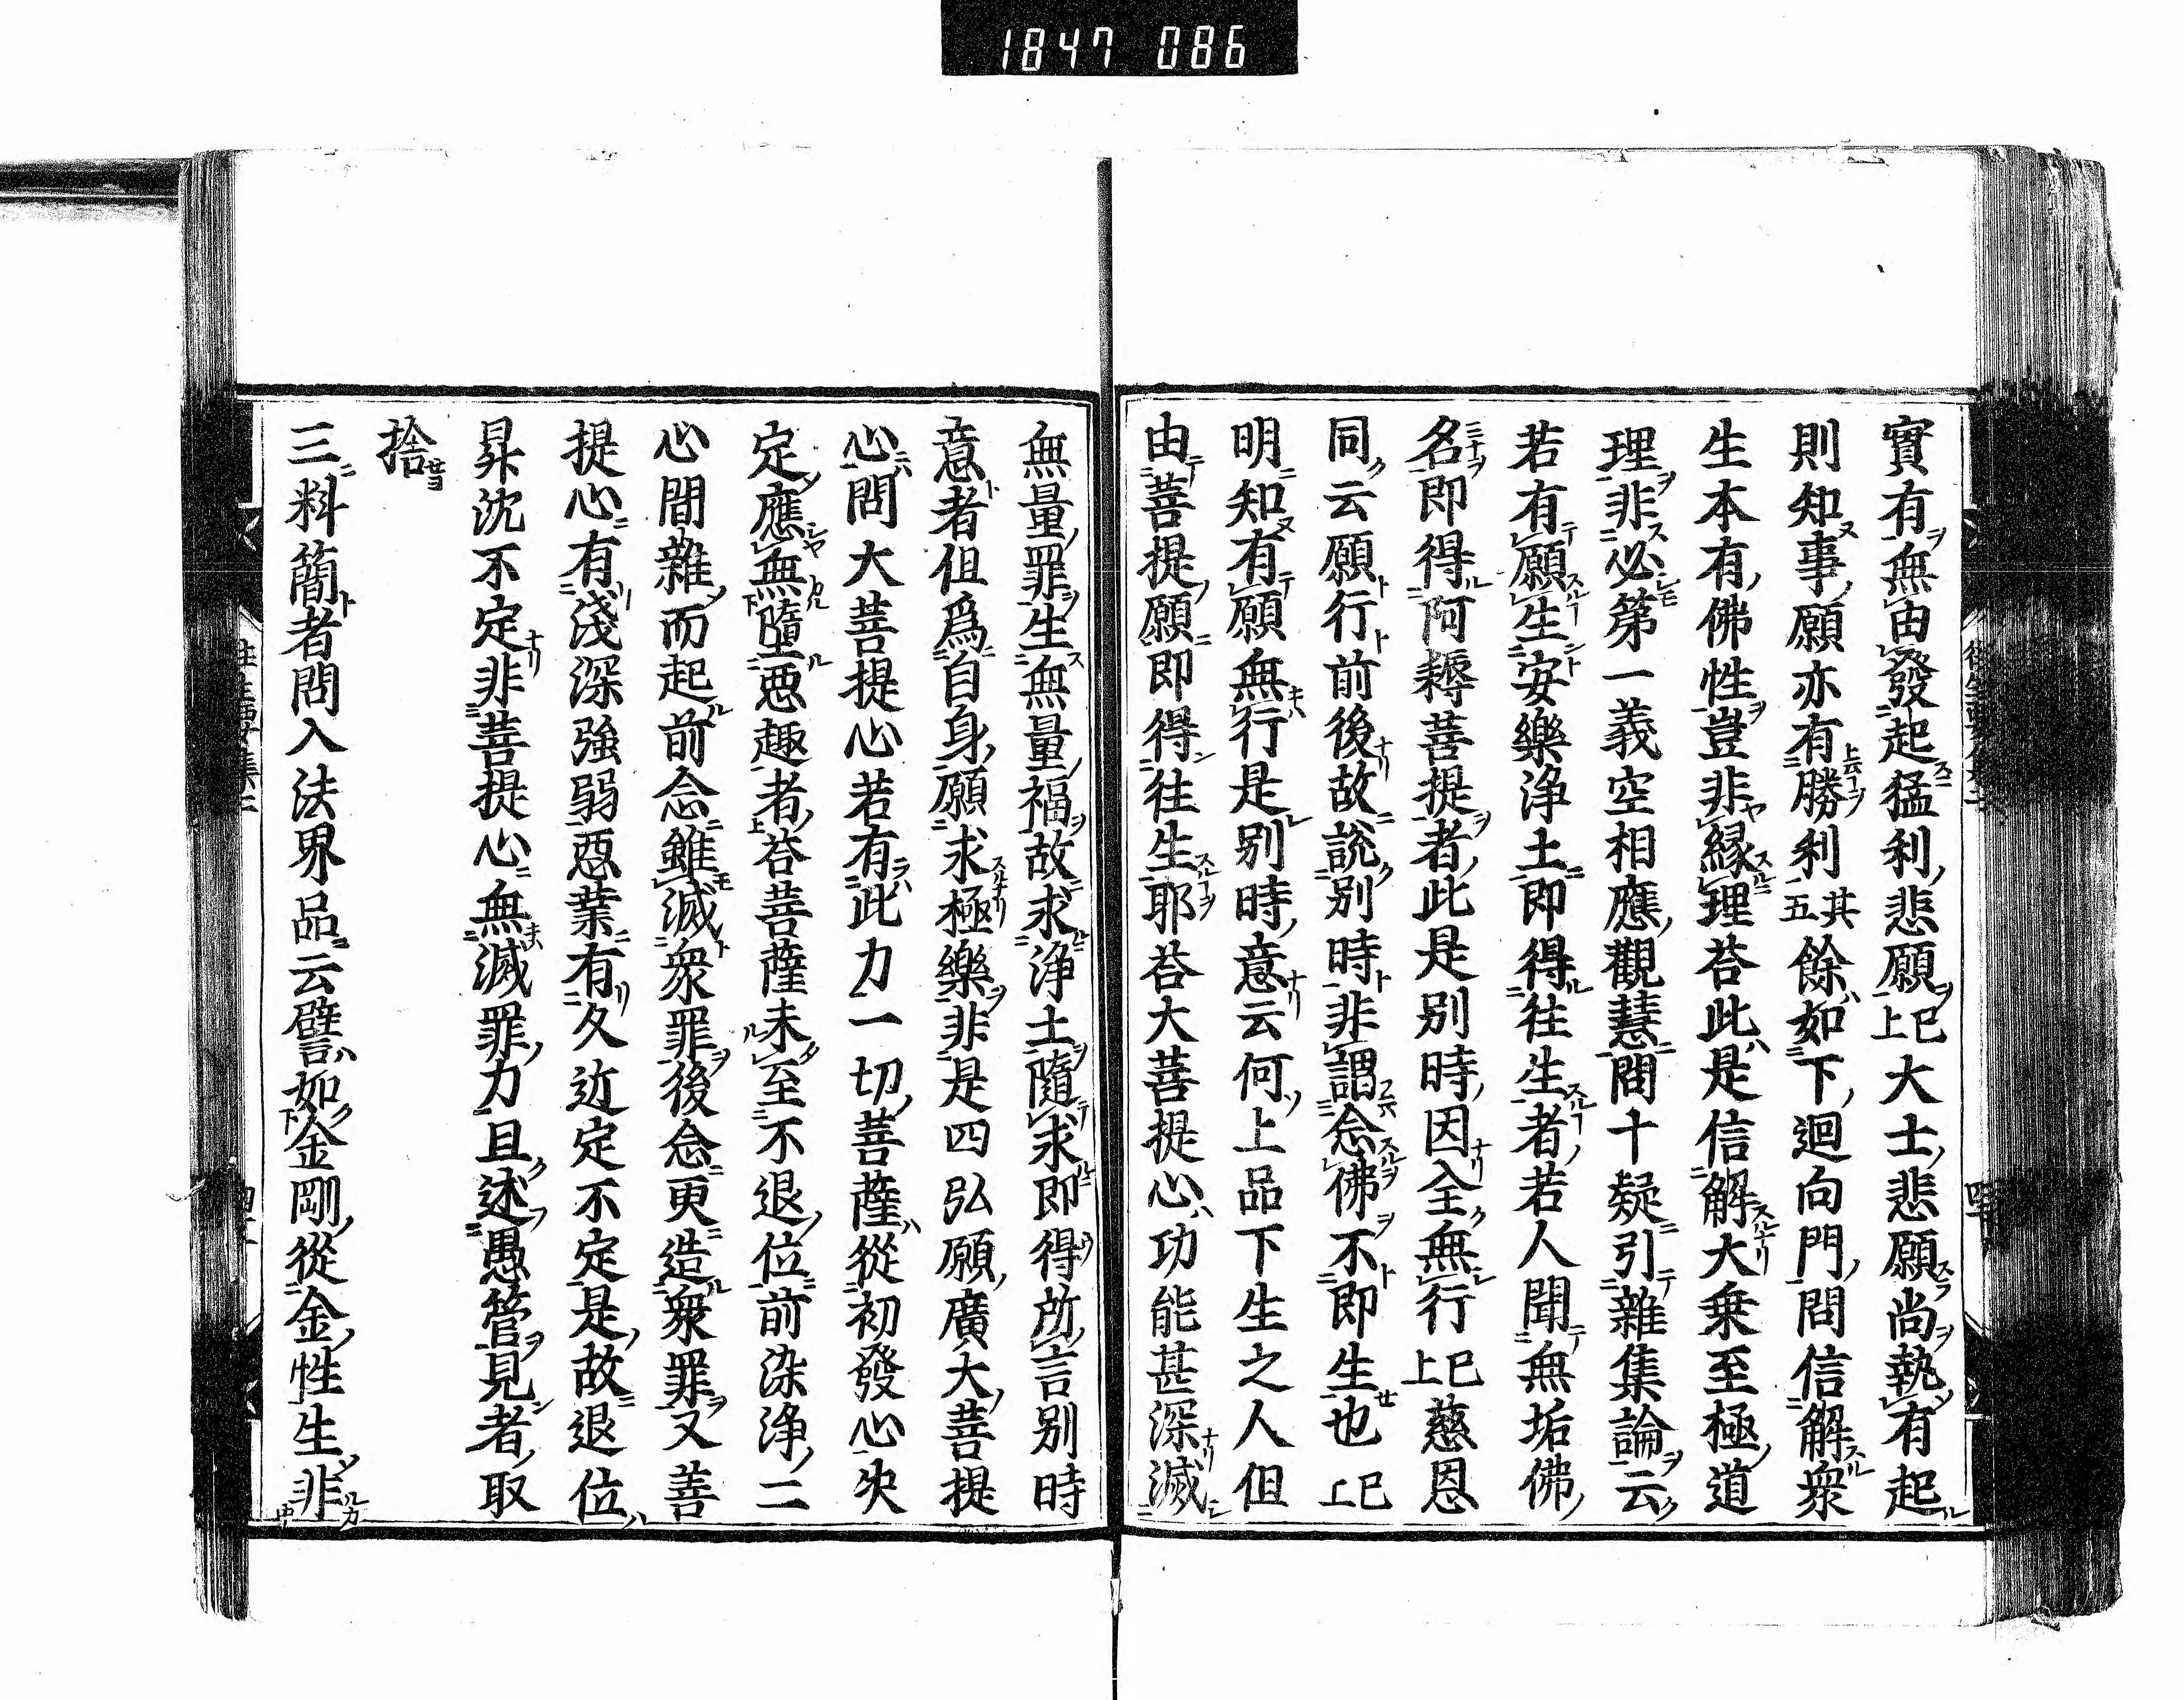 1847 086
實有無由發起猛利悲願已上大士悲願尚執有起
則知事願亦有勝利其五餘如下迴向門問信解衆
生本有佛性豈非縁理荅此是信解大乗至極道
理非必第一義空相應觀慧問十疑引雜集論云
若有願生安樂浄土即得往生者若人聞無垢佛
名即得阿耨菩提者此是别時因全無行已上慈恩
同云願行前後故説别時非謂念佛不即生也已上
明知有願無行是别時意云何上品下生之人但
由菩提願即得往生耶荅大菩提心功能甚深滅
無量罪生無量福故求浄土隨求即得所言别時
意者但爲自身願求極樂非是四弘願廣大菩提
心問大菩提心若有此力一切菩薩從初發心决
定應無墮惡趣者荅菩薩未至不退位前染浄二
心間雜而起前念雖滅衆罪後念更造衆罪又菩
提心有淺深強弱惡業有久近定不定是故退位
昇沈不定非菩提心無滅罪力且述愚管見者取
捨
三料簡者問入法界品云譬如金剛從金性生非